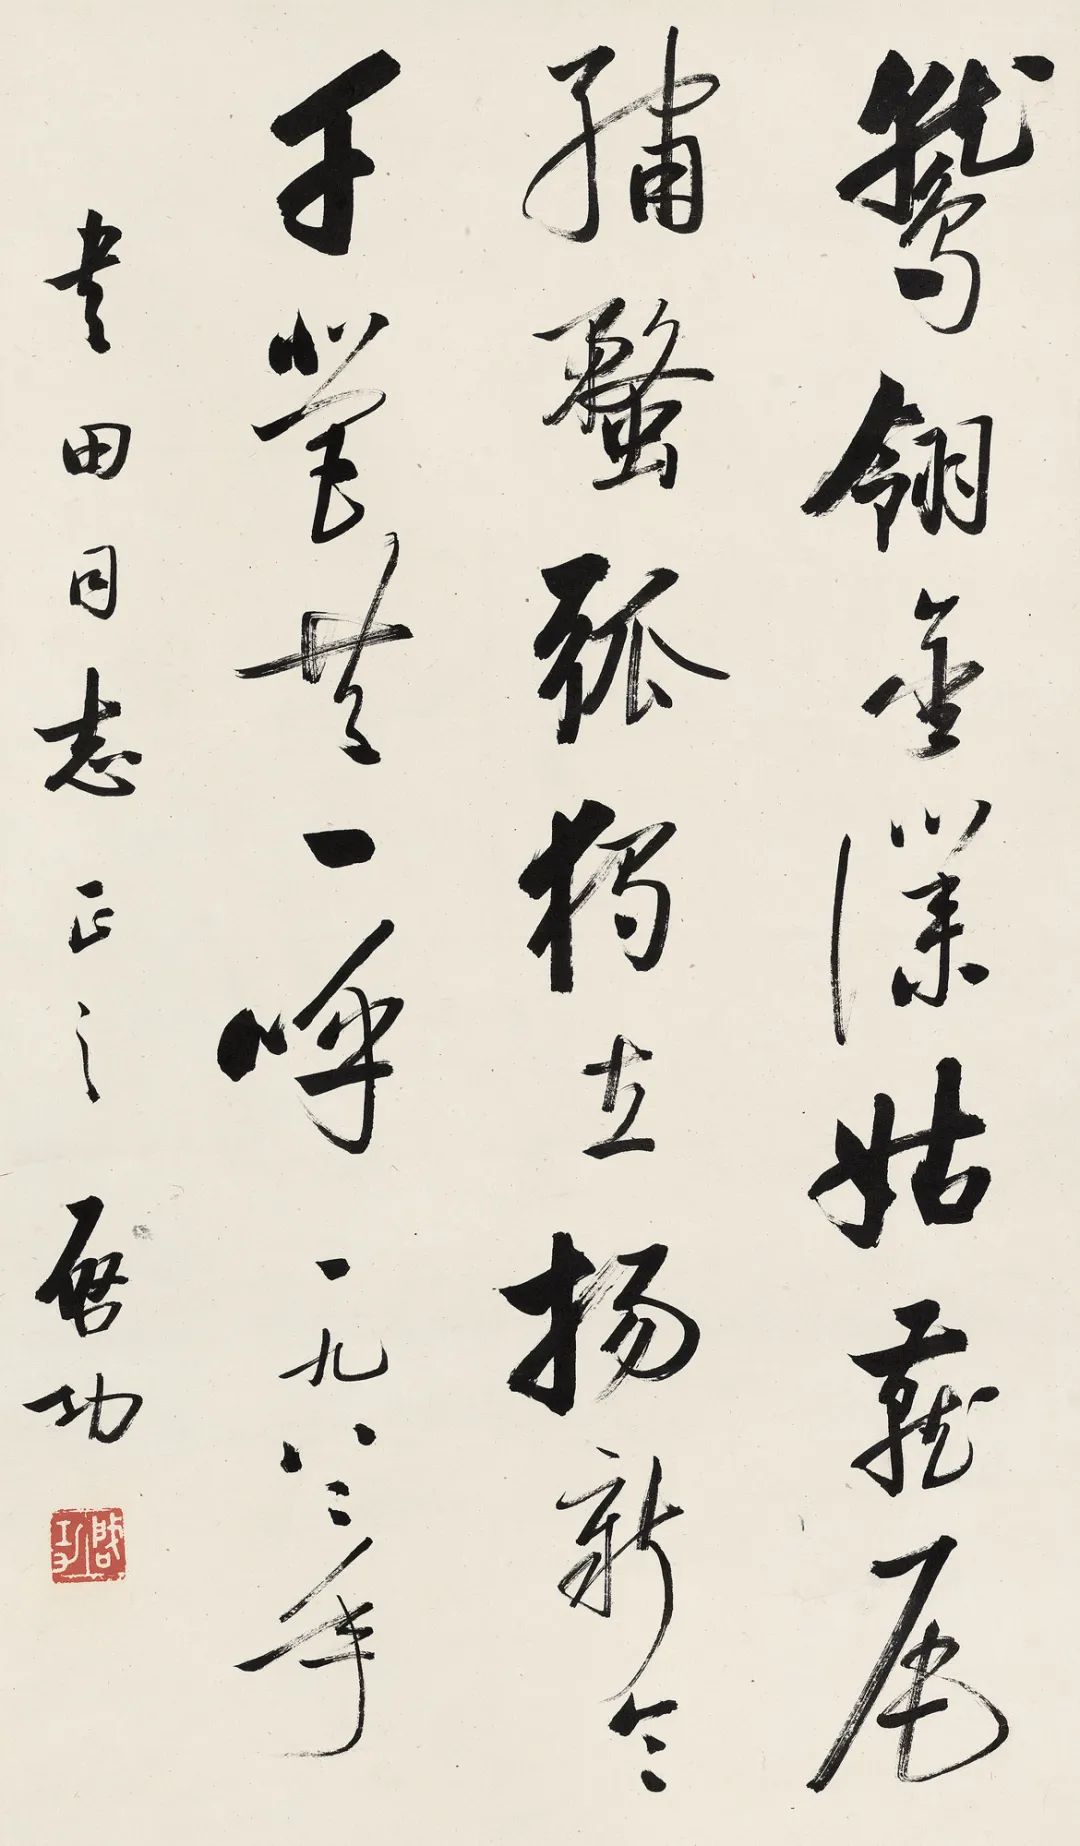 鹫翎金仆姑燕尾
绣蝥弧独立扬新令
千营共一呼一九八三年
书田同志正之启功
启功